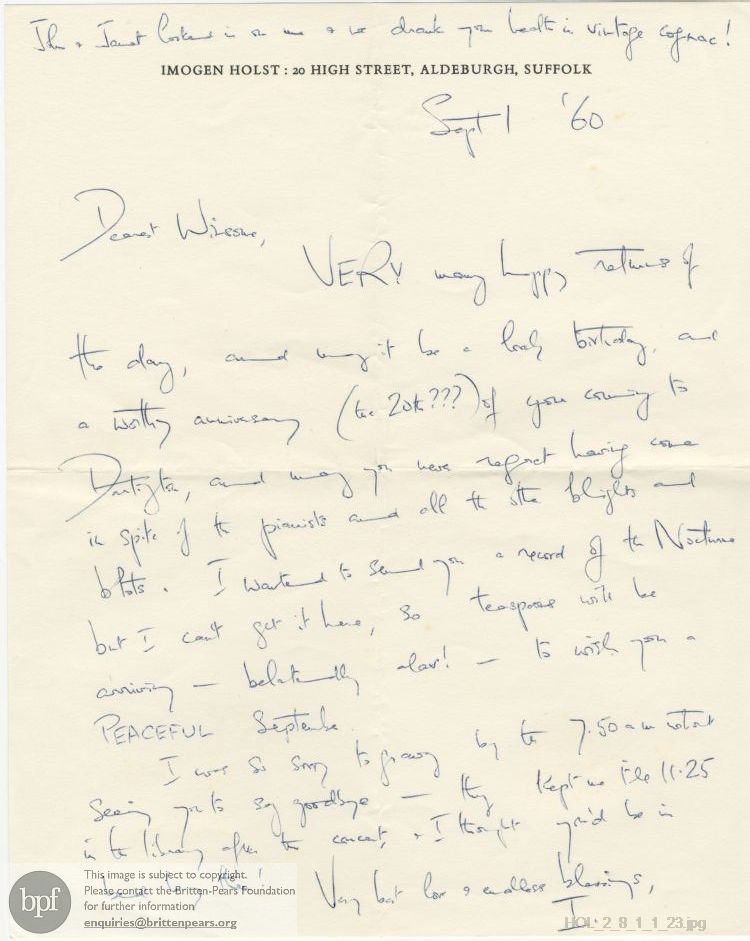 John & Janet looked in on me & we drank your health in vintage cognac!
IMOGEN HOLST : 20 HIGH STREET, ALDEBURGH, SUFFOLK
Sept 1 '60
Dearest Winsome,
VERY many happy returns of
the day, and may it be a lovely birthday, and
a worthy anniversary (the 20th???) of your coming to
Dartington, and may you never regret having come
in spite of the pianists and all the other blights and
blots. I wanted to send you a record of the Nocturne
but I can't get it here, so teaspoons will be
arriving — belatedly alas! — to wish you a
PEACEFUL September.
I was so sorry to go away by the 7.50 a.m without
seeing you to say goodbye — they kept me till 11.25
in the library after the concert, & I thought you'd be in
Very best love & endless blessings,
I.
bpf
This image is subject to copyright.
Please contact the Britten-Pears Foundation
for further information
enquiries@brittenpears.org
HOL_2_8_1_1_23.jpg